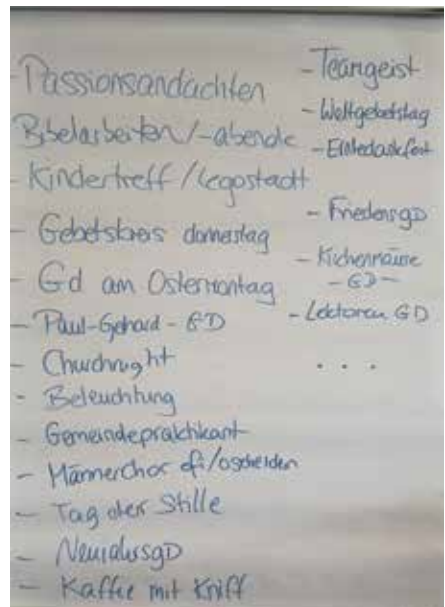 - Passionsandachten
Bibelarbeiten/-abende
- Kindertreff/Legostadt
- Gebetskreis donnerstag
- Gd am Ostermontag
- Paul-Gerhard-GD
- Churchnight
- Beleuchtung
- Gemeindepraktikant
- Männerchor
- Tag der Stille
- NeujahrsgD
- Kaffee mit Kniff
- Teamgeist
- Weltgebetstag
- Erntedankfest
- FriedensgD
- Kirchenmäuse
- GD -
- Lektoren GD
...